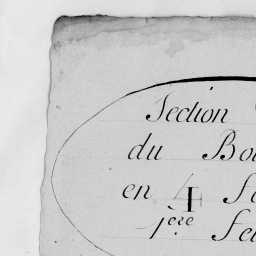 Section
du Bo
en 4 f
1ère fe